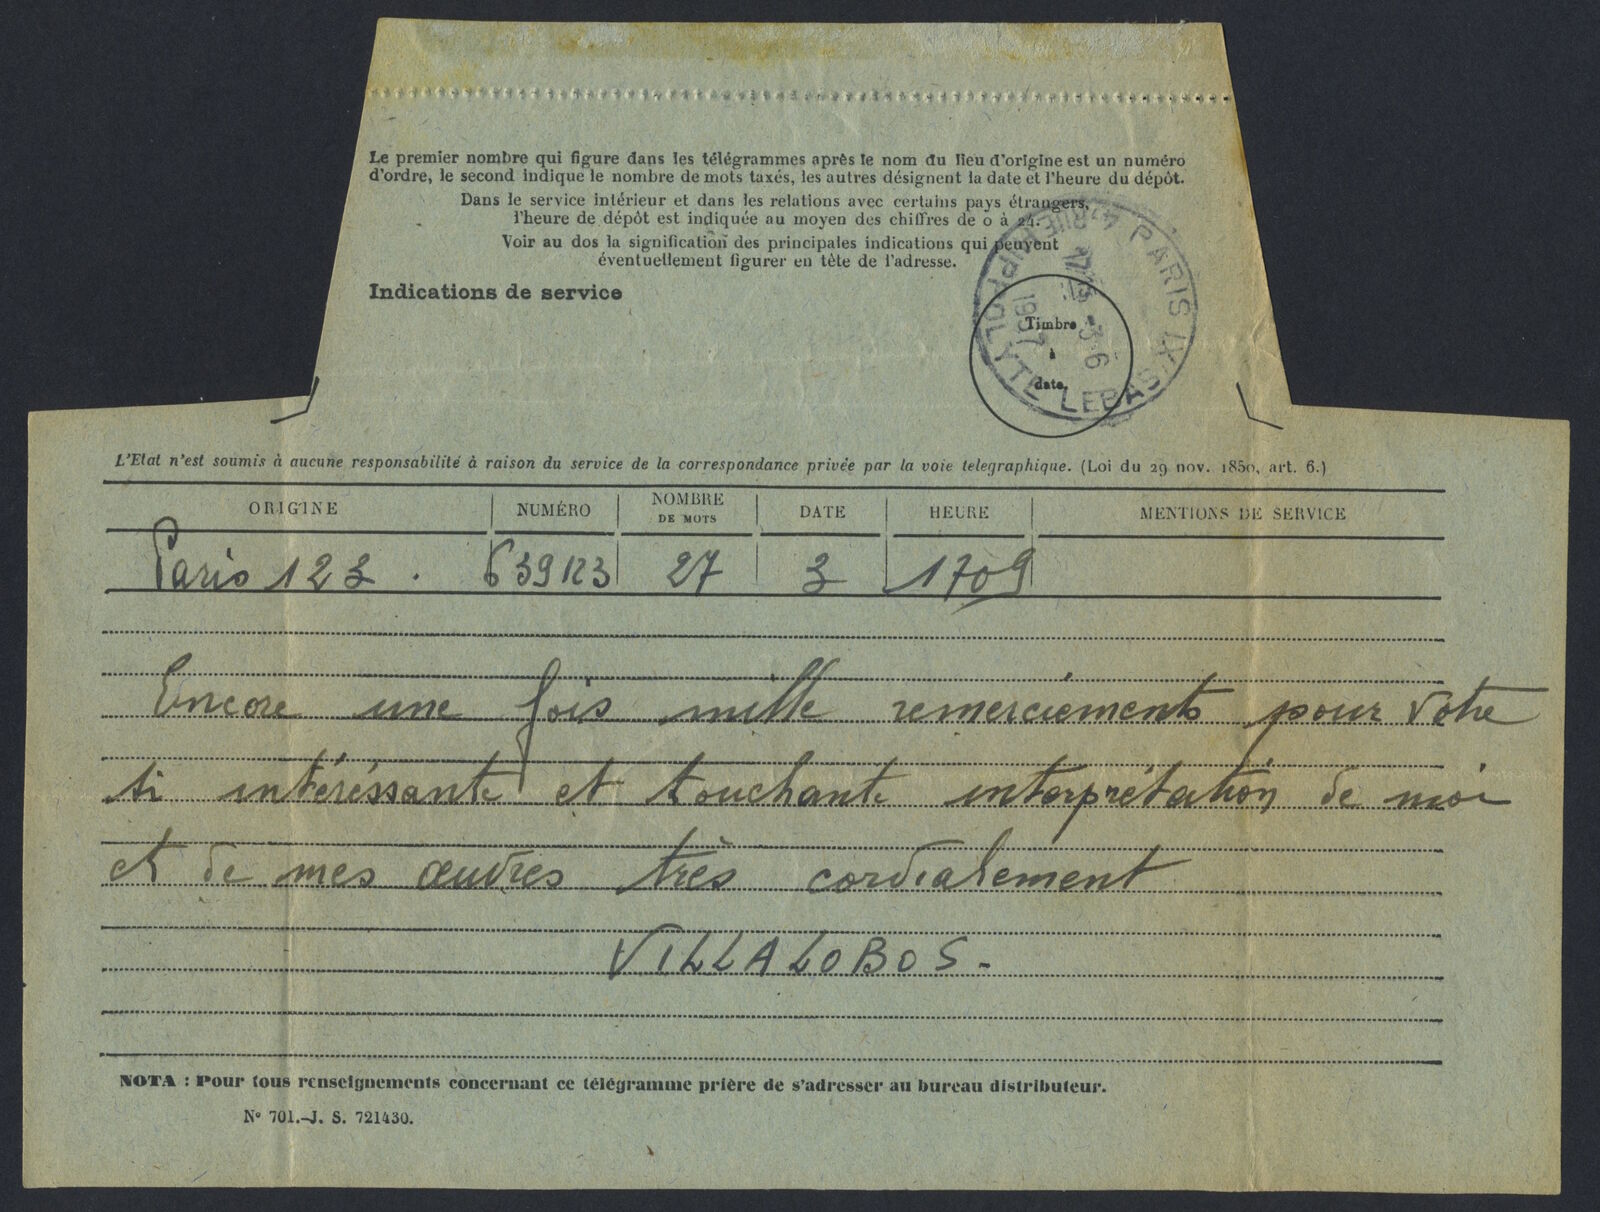 Le premier nombre qui figure dans les télégrammes après le nom du lieu d'origine est un numéro
d'ordre, le second indique le nombre de mots taxés, les autres désignent la date et l'heure du dépôt.
Dans le service intérieur et dans les relations avec certains pays étrangers,
l'heure de dépôt est indiquée au moyen des chiffres de 0 à 24.
Voir au dos la signification des principales indications qui peuvent
éventuellement figurer en tête de l'adresse.
Indications de service
Timbre
à
date
PARIS IX
HIPPOLYTE LEBAS
3-6
L'Etat n'est soumis à aucune responsabilité à raison du service de la correspondance privée par la voie telegraphique. (Loi du 29 nov. 1850, art. 6.)
ORIGINE NUMÉRO NOMBRE DE MOTS DATE HEURE MENTIONS DE SERVICE
Paris 123 . 639123 27 3 1709
Encore une fois mille remerciéments pour votre
si intéréssante et touchante interprétation de moi
et de mes œuvres très cordialement
VILLALOBOS -
NOTA : Pour tous renseignements concernant ce télégramme prière de s'adresser au bureau distributeur.
N° 701.-J. S. 721430.